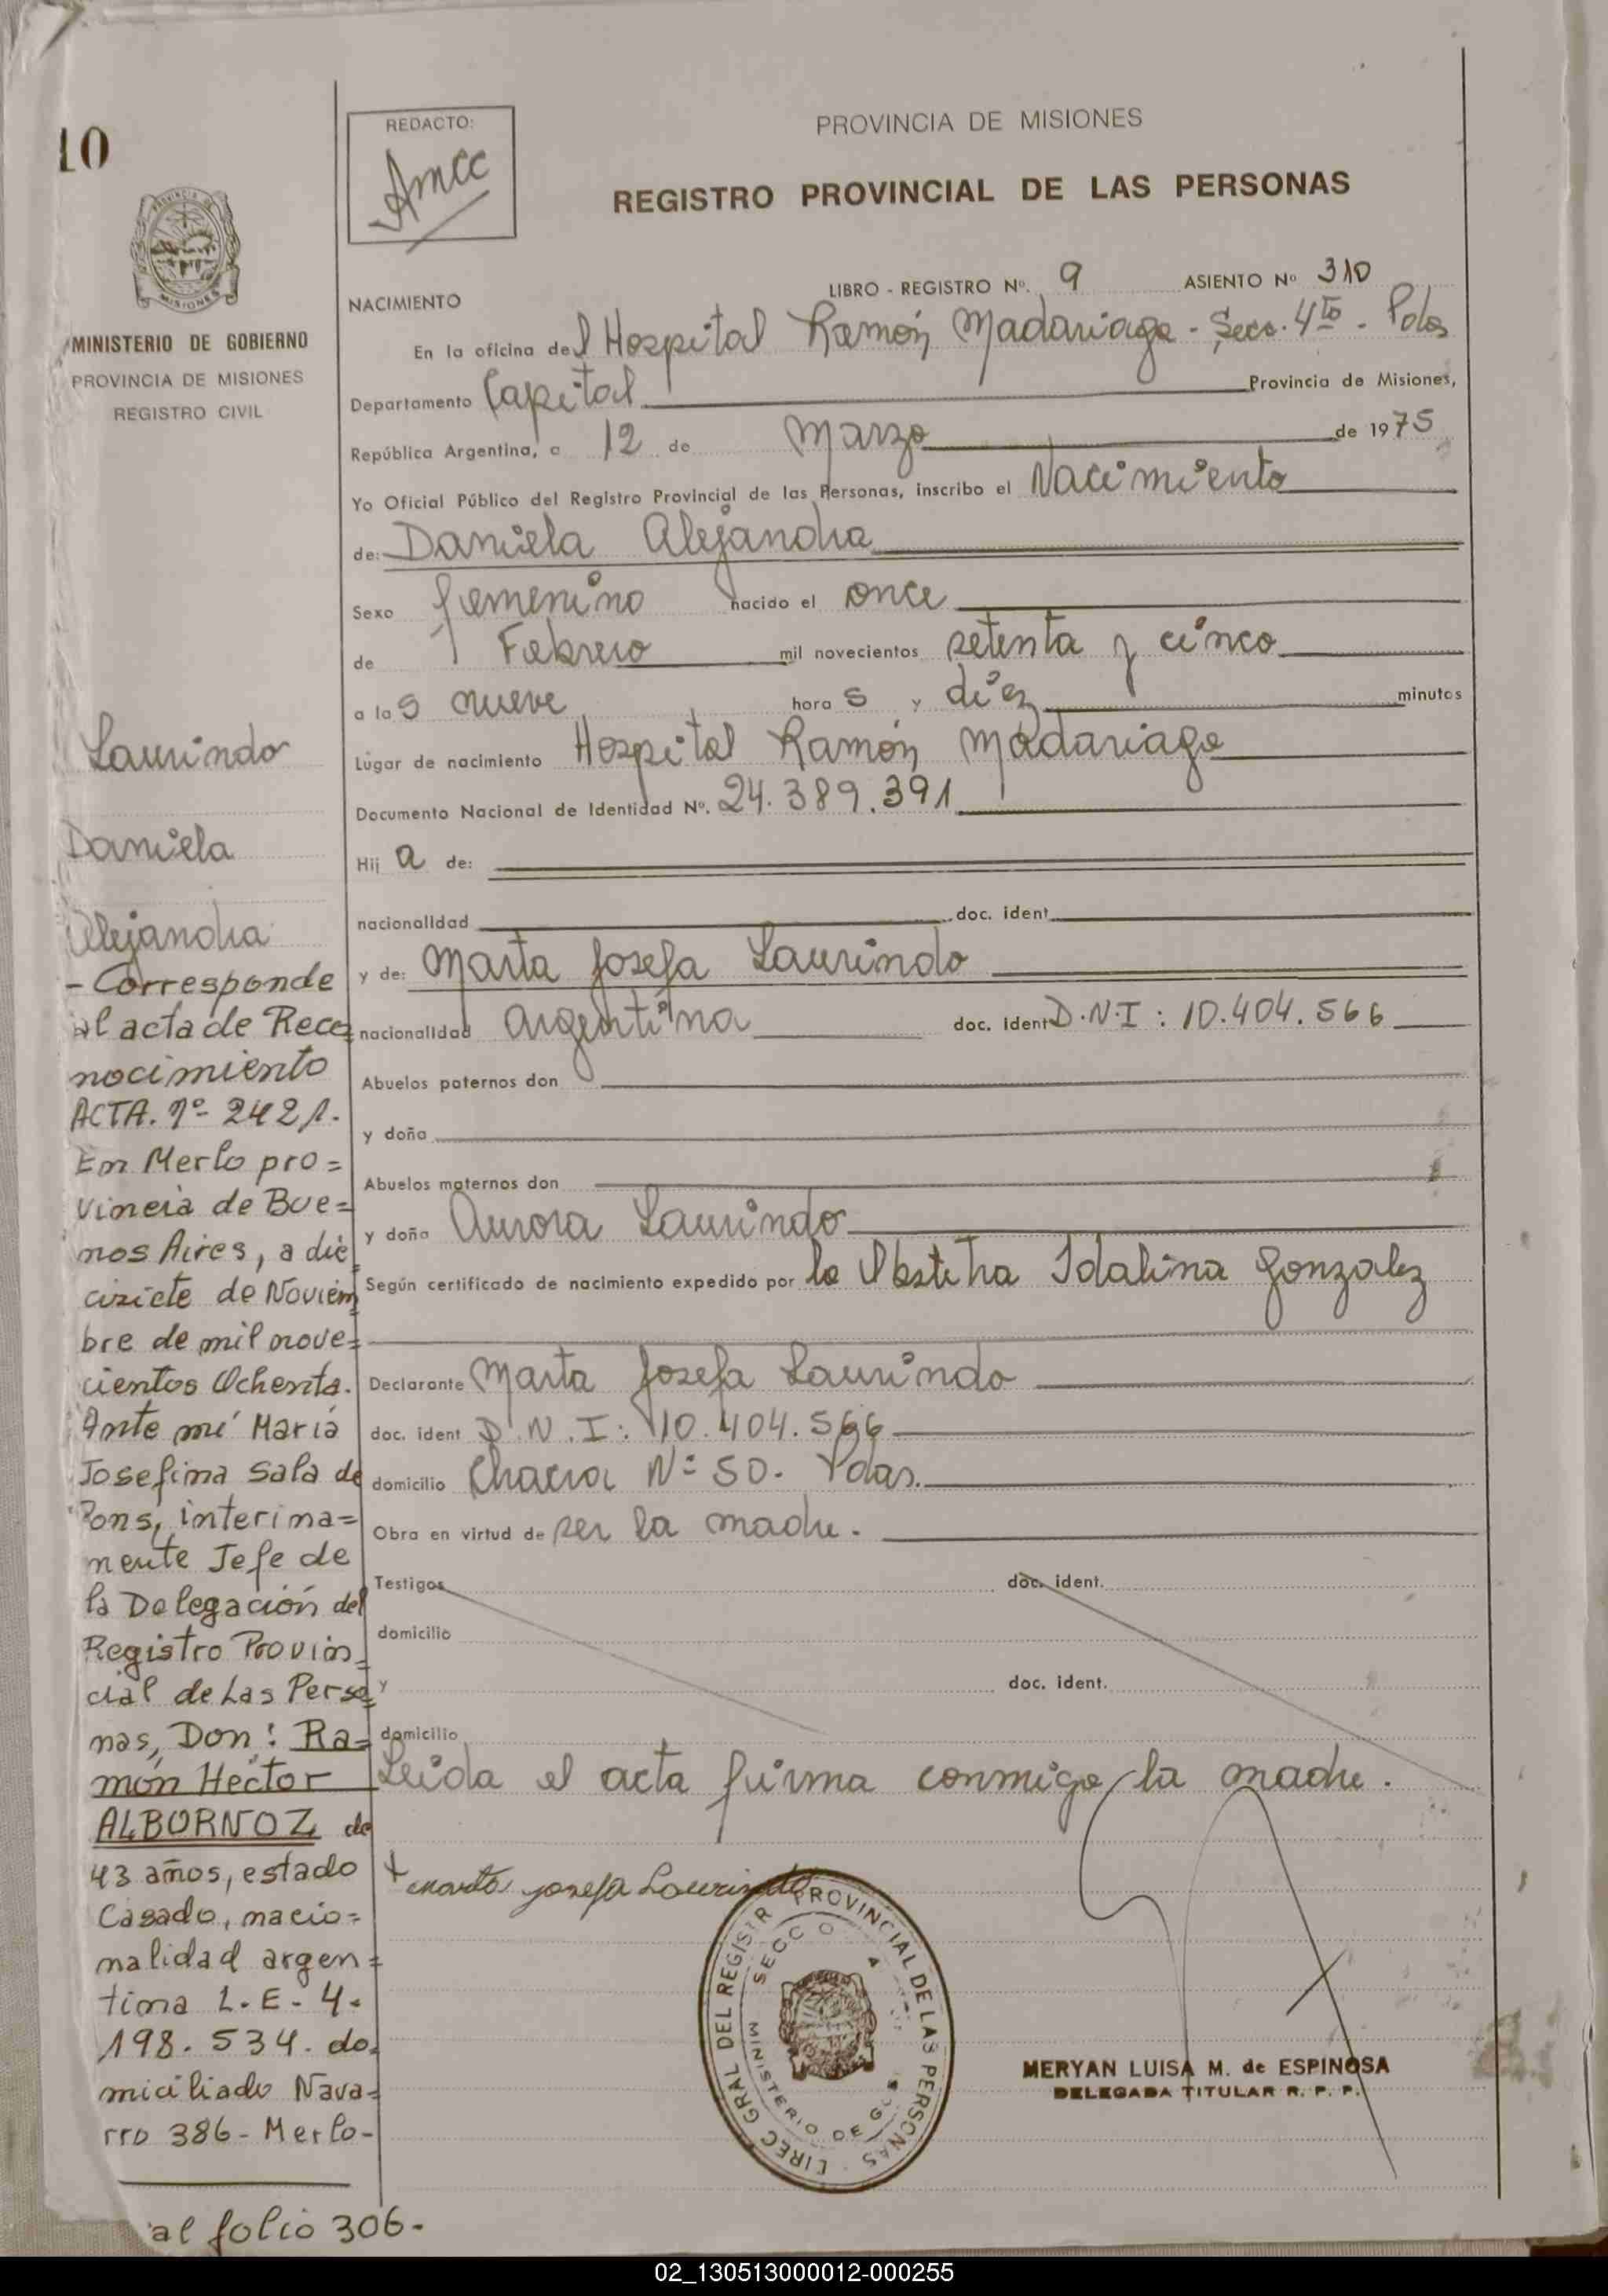 10
REDACTO:
Amcc
PROVINCIA DE MISIONES
REGISTRO PROVINCIAL DE LAS PERSONAS
MINISTERIO DE GOBIERNO
PROVINCIA DE MISIONES
REGISTRO CIVIL
LIBRO - REGISTRO Nº. 9 ASIENTO Nº 310
NACIMIENTO
En la oficina del Hospital Ramón Madariaga - Secc. 4to - Pdas
Departamento Capital Provincia de Misiones,
República Argentina, a 12 de Marzo de 1975
Yo Oficial Público del Registro Provincial de las Personas, inscribo el Nacimiento
de: Daniela Alejandra
Sexo femenino nacido el once
de Febrero mil novecientos setenta y cinco
a las nueve horas y diez minutos
Lugar de nacimiento Hospital Ramón Madariaga
Documento Nacional de Identidad Nº. 24.389.391
Hija de:
nacionalidad doc. ident
y de: Marta Josefa Laurindo
nacionalidad Argentina doc. ident D.N.I: 10.404.566
Abuelos paternos don
y doña
Abuelos maternos don
y doña Aurora Laurindo
Según certificado de nacimiento expedido por la Obstetra Idalina Gonzalez
Declarante Marta Josefa Laurindo
doc. ident D.N.I: 10.404.566
domicilio Chacra Nº 50. Pdas.
Obra en virtud de ser la madre.
Testigos doc. ident.
domicilio
y doc. ident.
domicilio
Leida el acta firma conmigo la madre.
Marta Josefa Laurindo
DIREC GRAL DEL REGISTR PROVINCIAL DE LAS PERSONAS
SECC 4
MINISTERIO DE
MERYAN LUISA M. de ESPINOSA
DELEGADA TITULAR R. P. P.
Laurindo
Daniela
Alejandra
- Corresponde
al acta de Reco=
nocimiento
ACTA. Nº- 2421.
En Merlo pro=
vincia de Bue=
nos Aires, a die
cisiete de Noviem=
bre de mil nove=
cientos Ochenta.
Ante mí María
Josefina Sala de
Pons, interina=
mente Jefe de
la Delegación del
Registro Provin=
cial de Las Perso=
nas, Don: Ra=
món Hector
ALBORNOZ de
43 años, estado
Casado, nacio=
nalidad argen=
tina L.E- 4.
198.534. do=
miciliado Nava=
rro 386- Merlo-
al folio 306-
02_130513000012-000255